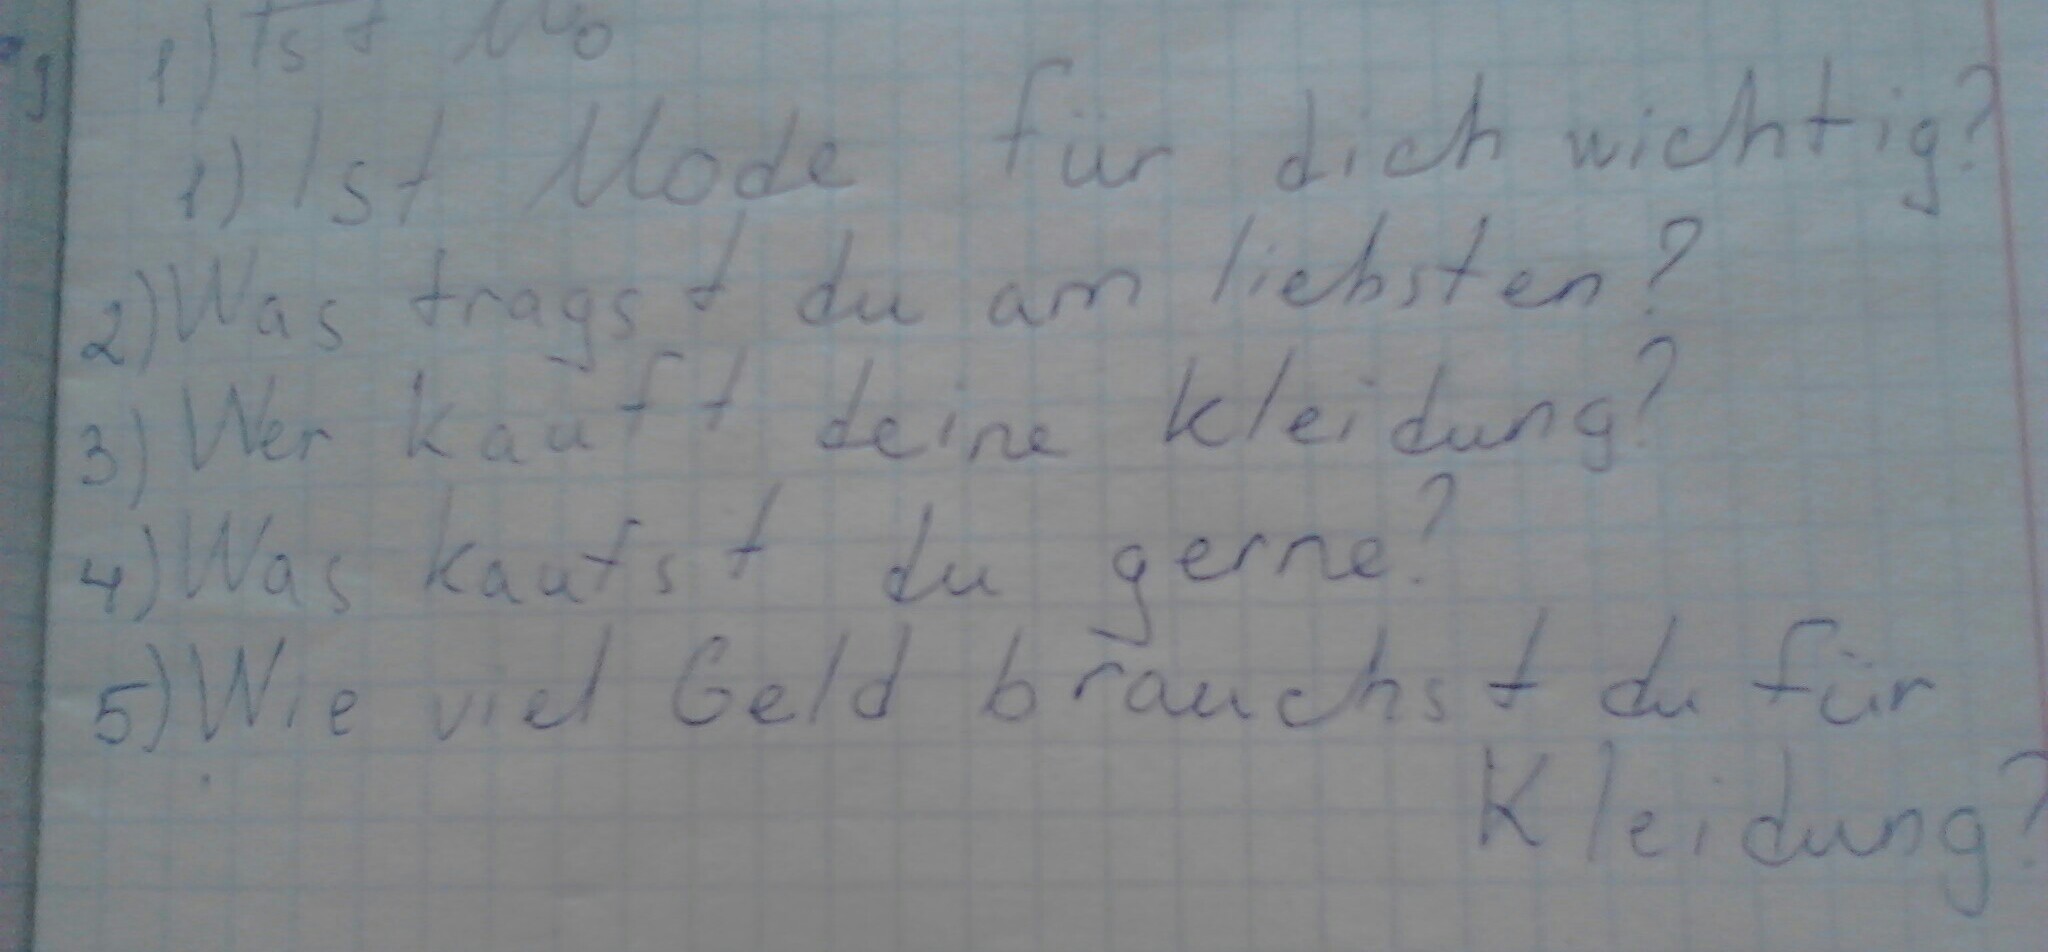 1) Ist Mo
1) Ist Mode für dich wichtig?
2) Was tragst du am liebsten?
3) Wer kauft deine Kleidung?
4) Was kaufst du gerne?
5) Wie viel Geld brauchst du für
Kleidung?